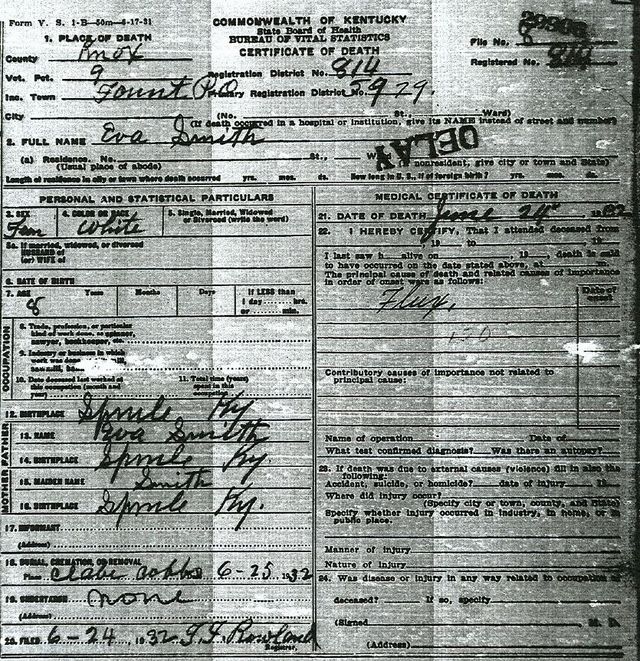 Form V. S. 1-B—50m—6-17-31
COMMONWEALTH OF KENTUCKY
State Board of Health
BUREAU OF VITAL STATISTICS
CERTIFICATE OF DEATH
File No.
Registered No. 814
1. PLACE OF DEATH
County Knox
Vot. Pct. 9
Registration District No. 814
Inc. Town Fount P.O.
Primary Registration District No. 7929.
City (No. St., Ward)
(If death occurred in a hospital or institution, give its NAME instead of street and number)
2. FULL NAME Eva Smith
DELAY
(a) Residence. No. St.,
(Usual place of abode) nonresident, give city or town and State)
Length of residence in city or town where death occurred yrs. mos. ds. How long in U. S., if of foreign birth? yrs. mos. ds.
PERSONAL AND STATISTICAL PARTICULARS
3. SEX Fem
4. COLOR OR RACE White
5. Single, Married, Widowed
or Divorced (write the word)
5a. If married, widowed, or divorced
HUSBAND of
(or) WIFE of
6. DATE OF BIRTH
7. AGE Years Months Days If LESS than
8 1 day hrs.
or min.
OCCUPATION
8. Trade, profession, or particular
kind of work done, as spinner,
sawyer, bookkeeper, etc.
9. Industry or business in which
work was done,
saw mill,
10. Date deceased last worked at
this occupation (month and
year)
11. Total time (years)
spent in this
occupation
12. BIRTHPLACE Sprule Ky
FATHER
13. NAME Eva Smith
14. BIRTHPLACE Sprule Ky.
MOTHER
15. MAIDEN NAME Smith
16. BIRTHPLACE Sprule Ky.
17. INFORMANT
(Address)
18. BURIAL, CREMATION, OR REMOVAL
Place Clabe Cobbs 6-25 1932
19. UNDERTAKER none
(Address)
20. FILED 6-24, 1932 Rowland
Registrar.
MEDICAL CERTIFICATE OF DEATH
21. DATE OF DEATH June 24", 1932
22. I HEREBY CERTIFY, That I attended deceased from
, 19 to , 19
I last saw h alive on , 19 , death is said
to have occurred on the date stated above, at
The principal cause of death and related causes of importance
in order of onset were as follows:
Date of
onset
Flux.
130
Contributory causes of importance not related to
principal cause:
Name of operation Date of
What test confirmed diagnosis? Was there an autopsy?
23. If death was due to external causes (violence) fill in also the
following:
Accident, suicide, or homicide? date of injury 19
Where did injury occur?
(Specify city or town, county, and State)
Specify whether injury occurred in industry, in home, or in
public place.
Manner of injury
Nature of injury
24. Was disease or injury in any way related to occupation of
deceased? If so, specify
(Signed M. D.
(Address)